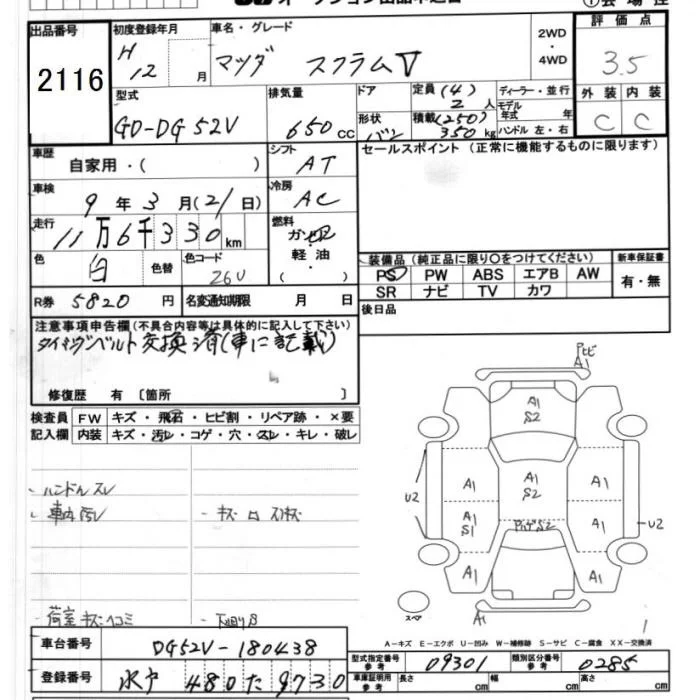 出品番号
2116
初度登録年月
H 12 月
車名・グレード
マツダ スクラムV
2WD
・
4WD
評価点
3.5
外装 内装
C C
型式
GD-DG52V
排気量
650 cc
ドア
形状
バン
定員 (4)
2 人
積載 (250)
350 kg
ディーラー・並行
モデル
年式 年
ハンドル 左・右
車歴
自家用・( )
シフト
AT
セールスポイント (正常に機能するものに限ります)
車検
9 年 3 月 (21 日)
冷房
AC
走行
11万6千330km
燃料
ガソリン
軽油・
( )
色
白
色替
色コード
26U
装備品 (純正品に限り○をつけてください)
新車保証書
PS PW ABS エアB AW
有・無
SR ナビ TV カワ
R券 5820 円
名変通知期限 月 日
後日品
注意事項申告欄(不具合内容等は具体的に記入して下さい)
タイミングベルト交換済(車に記載)
修復歴 有 〔箇所 〕
検査員
記入欄
FW キズ・飛石・ヒビ割・リペア跡・×要
内装 キズ・汚レ・コゲ・穴・スレ・キレ・破レ
・ハンドルスレ
・車内汚レ
荷室キズヘコミ
・下回りサビ
A1
A1
S2
U2
A1
A1
S2
A1
A1
S1
S2
A1
U2
A1
A1
A1
スペア
1
A−キズ E−エクボ U−凹み W−補修跡 S−サビ C−腐食 XX−交換済
車台番号
DG52V-180438
型式指定番号
参考
09301
類別区分番号
参考
0285
登録番号
水戸 480 た 9730
車庫証明用
参考
長さ cm
幅 cm
高さ cm